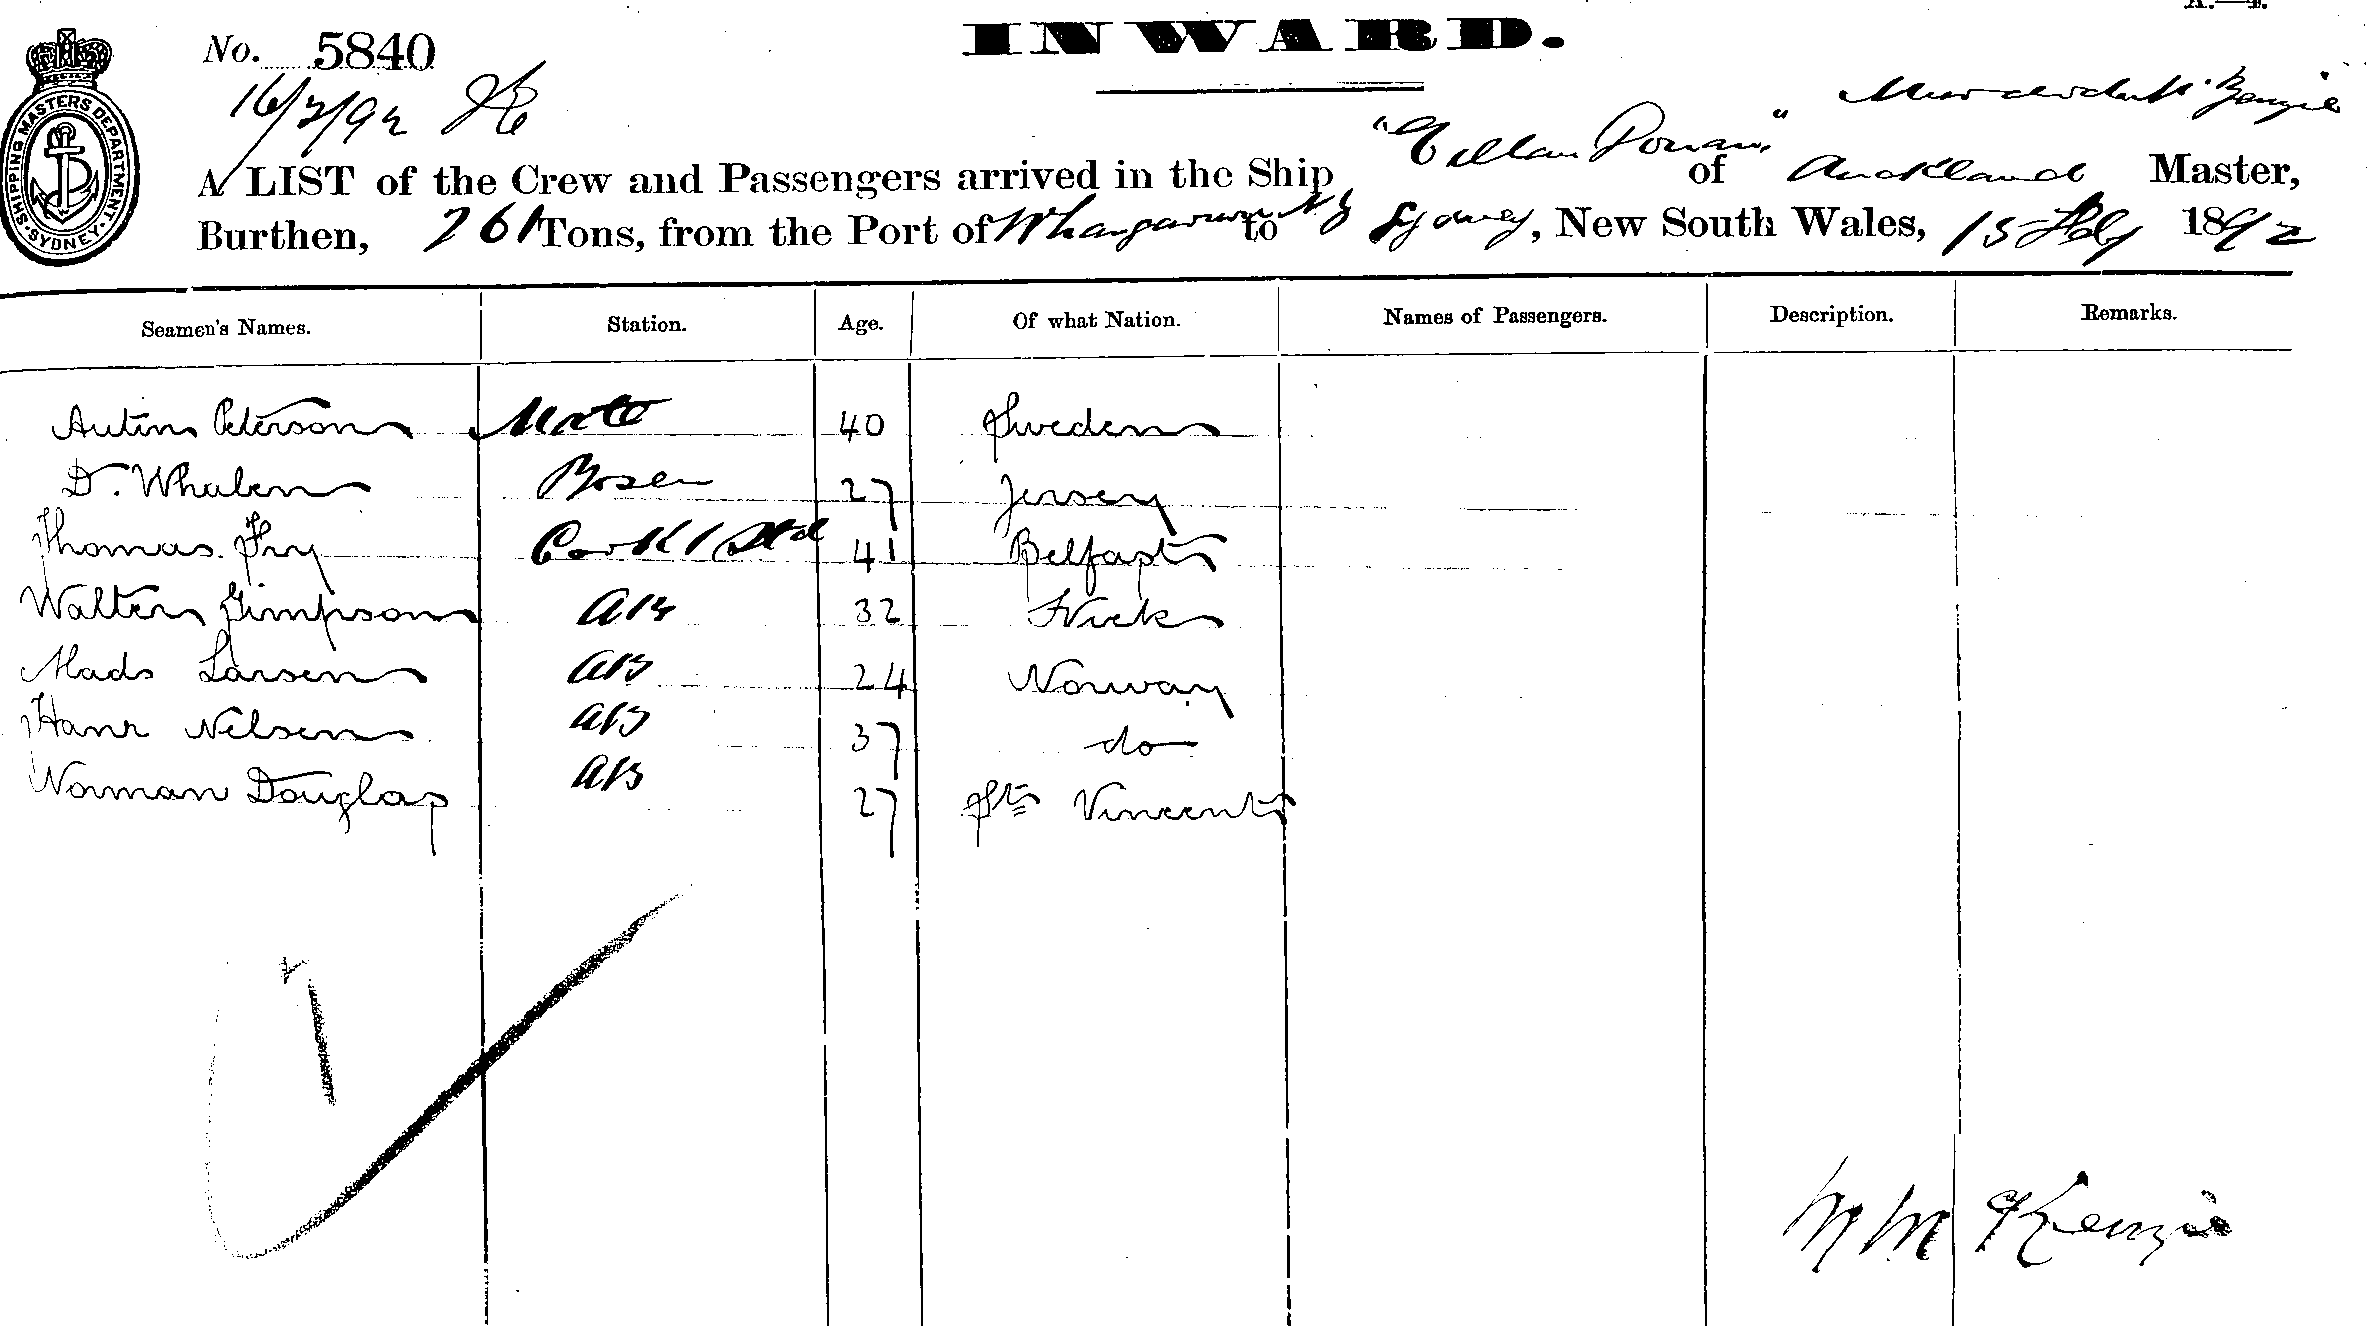 A.—4.
INWARD.
No. 5840
16/2/92
SHIPPING MASTERS DEPARTMENT
SYDNEY
A LIST of the Crew and Passengers arrived in the Ship of Auckland Master,
Burthen, 261 Tons, from the Port of to Sydney, New South Wales, 15 Feby 1892
Seamen's Names. Station. Age. Of what Nation. Names of Passengers. Description. Remarks.
Peterson Mate 40 Sweden
D. Whalen Bosen 27 Jersey
Thomas Fry Cook / Std 41 Belfast
Walter Simpson AB 32 Wick
Mads Larsen AB 24 Norway
Hans Nilsen AB 37 do
Norman Douglas AB 27 St Vincent
M McKenzie